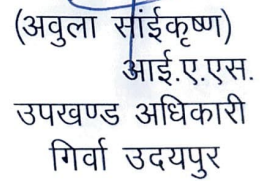 (अवुला सांईकृष्ण)
आई.ए.एस.
उपखण्ड अधिकारी
गिर्वा उदयपुर